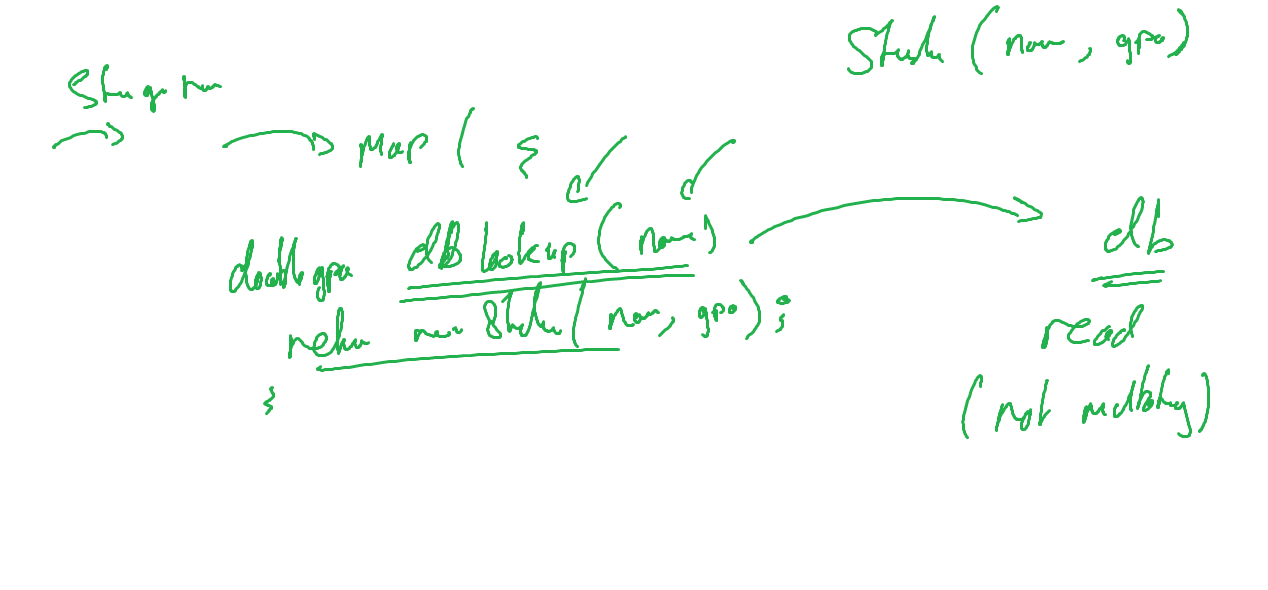 Student (name, gpa)
Map ( {
double gpa dB lookup (name)
db
return new Student (name, gpa) ;
read
}
(not mutating)